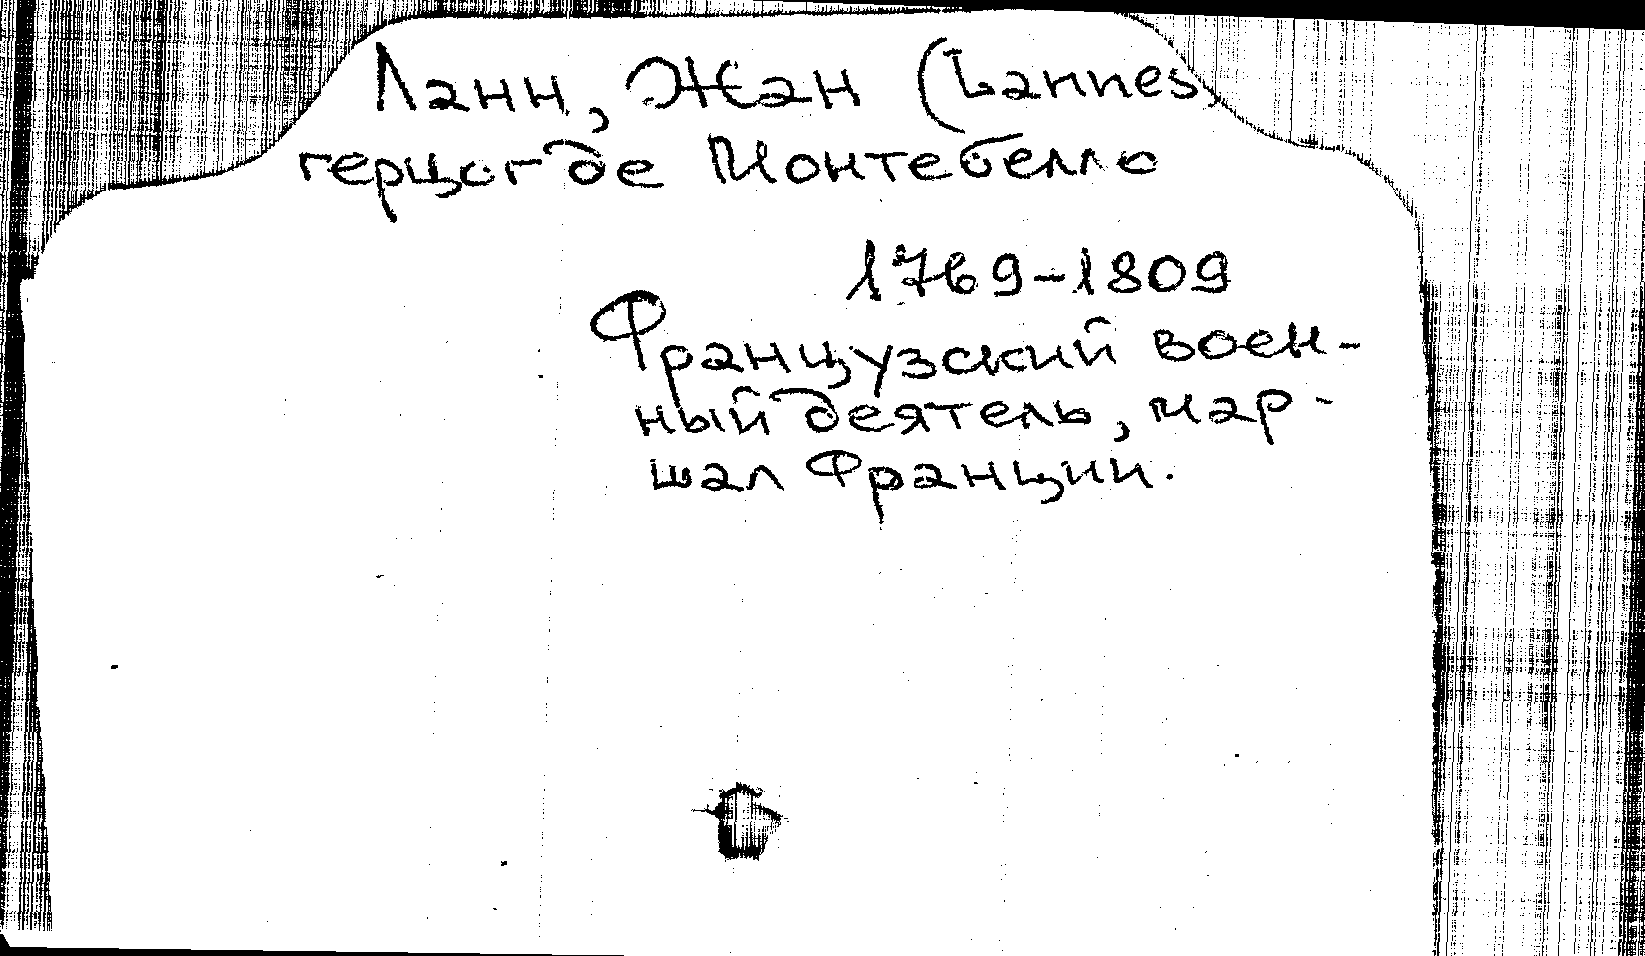 Ланн, Жан (Lannes,
герцог де Монтебелло
1769-1809
Французский воен-
ный деятель, мар-
шал Франции.